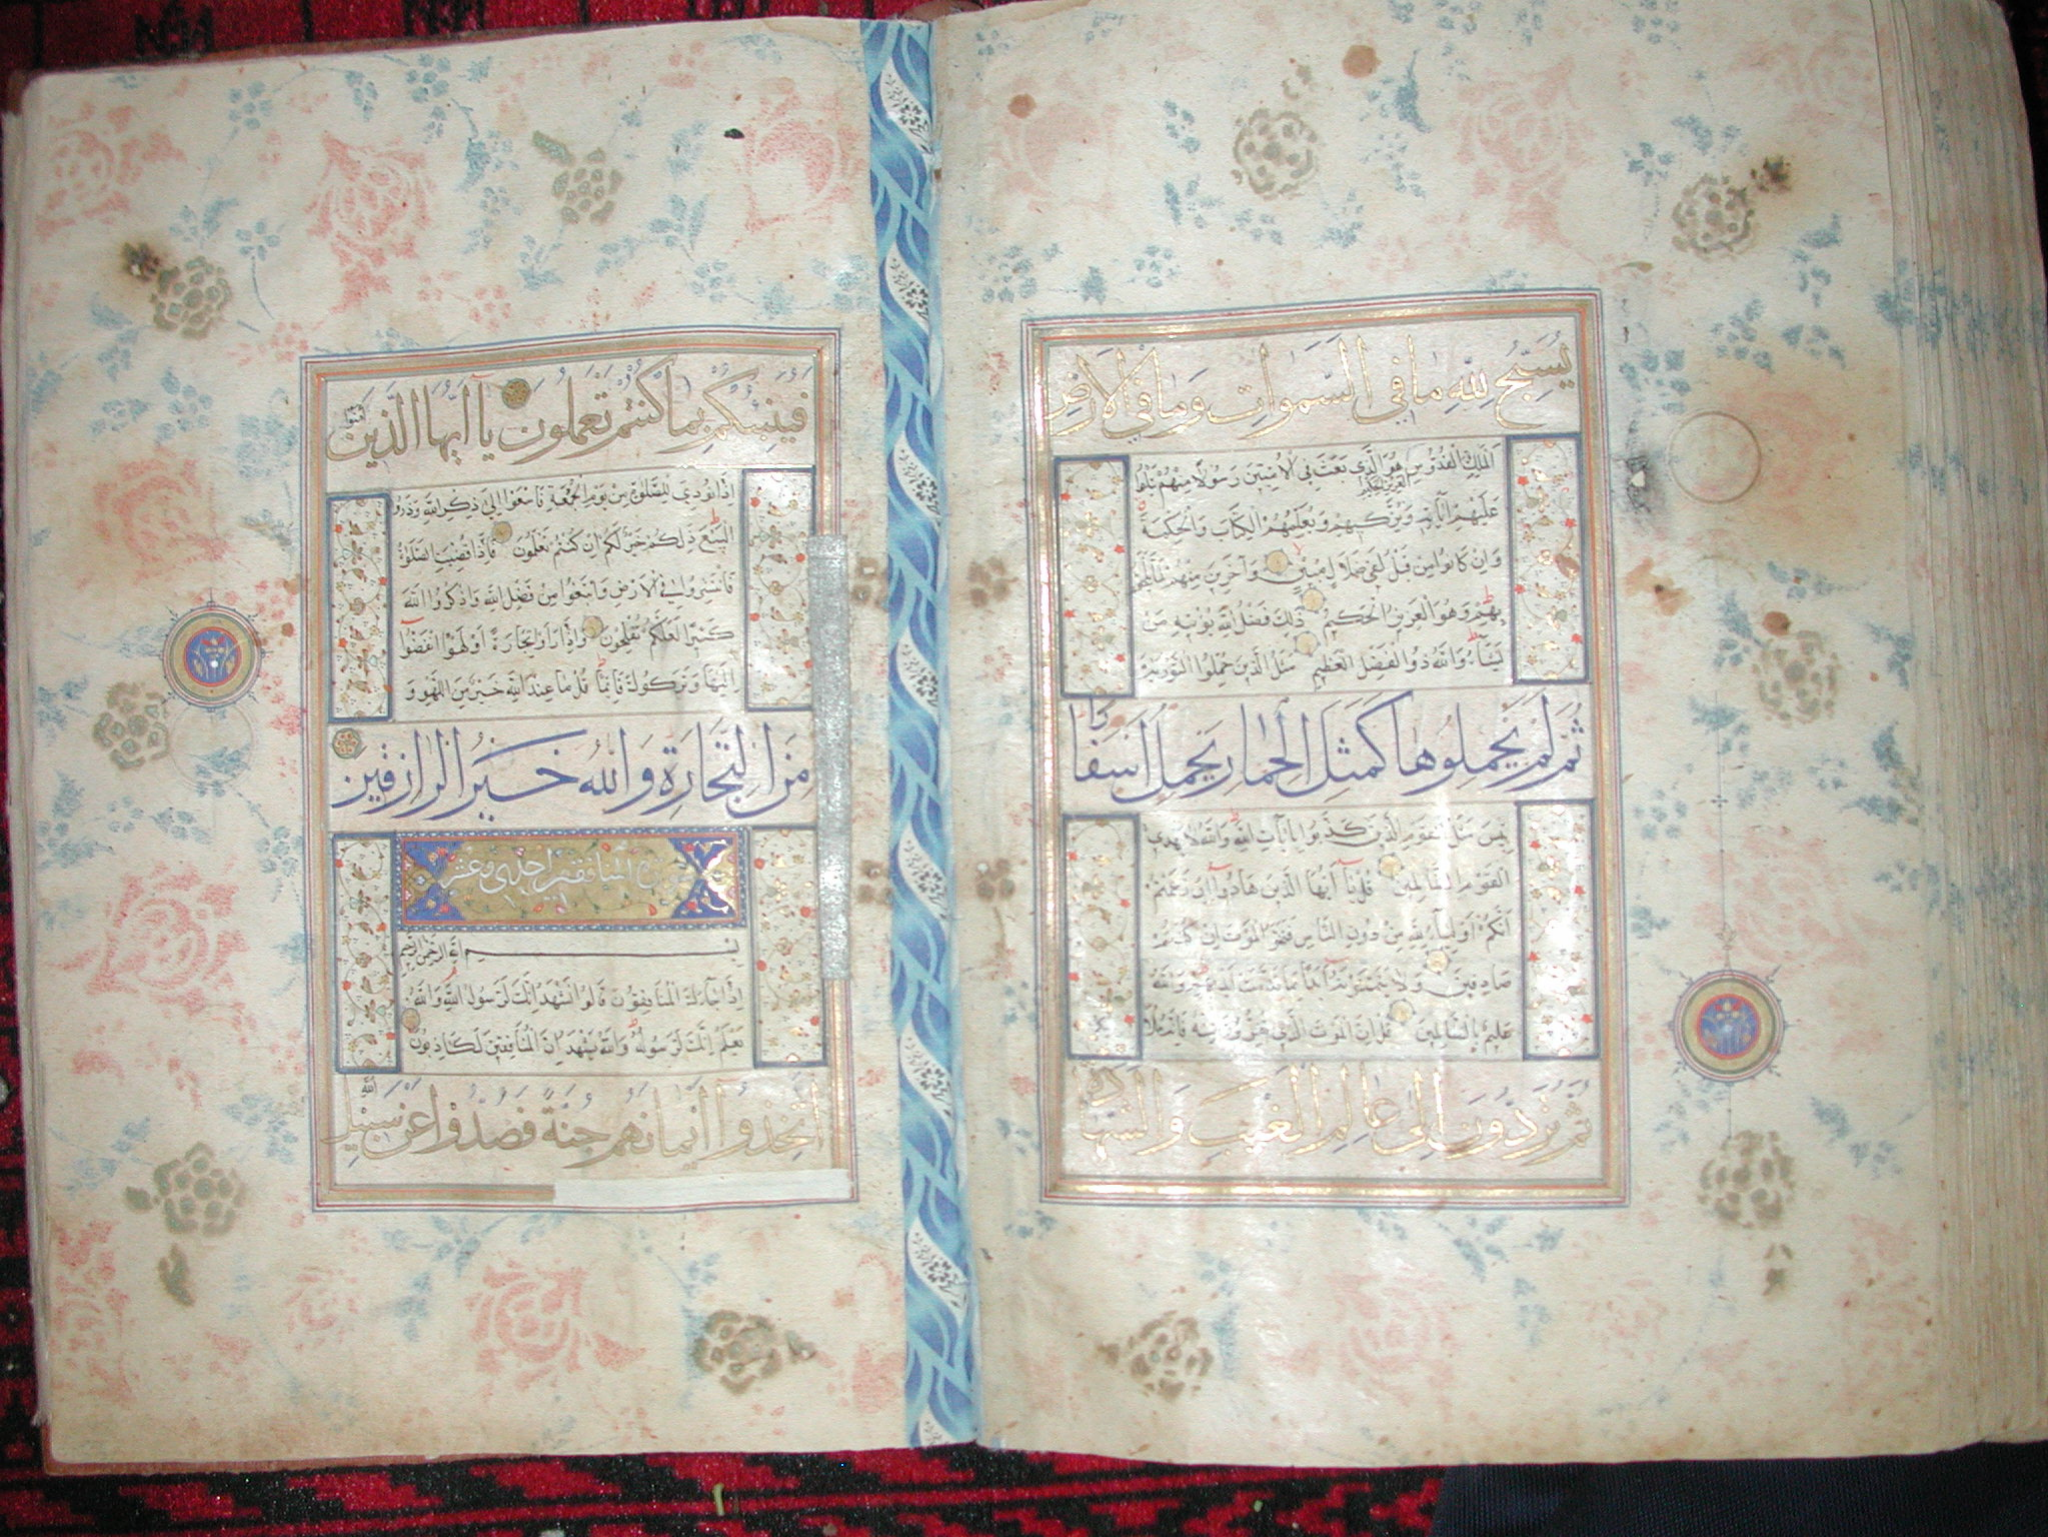 يُسَبِّحُ لِلّٰهِ مَا فِي السَّمٰوَاتِ وَمَا فِي الْاَرْضِ
الْمَلِكِ الْقُدُّوسِ الْعَزِيزِ الْحَكِيمِ هُوَ الَّذِي بَعَثَ فِي الْاُمِّيِّينَ رَسُولًا مِنْهُمْ يَتْلُوا
عَلَيْهِمْ اٰيَاتِهِ وَيُزَكِّيهِمْ وَيُعَلِّمُهُمُ الْكِتَابَ وَالْحِكْمَةَ
وَاِنْ كَانُوا مِنْ قَبْلُ لَفِي ضَلَالٍ مُبِينٍ وَآخَرِينَ مِنْهُمْ لَمَّا يَلْحَقُوا
بِهِمْ وَهُوَ الْعَزِيزُ الْحَكِيمُ ذٰلِكَ فَضْلُ اللهِ يُؤْتِيهِ مَنْ
يَشَآءُ وَاللهُ ذُو الْفَضْلِ الْعَظِيمِ مَثَلُ الَّذِينَ حُمِّلُوا التَّوْرٰيةَ
ثُمَّ لَمْ يَحْمِلُوهَا كَمَثَلِ الْحِمَارِ يَحْمِلُ اَسْفَارًا
بِئْسَ مَثَلُ الْقَوْمِ الَّذِينَ كَذَّبُوا بِاٰيَاتِ اللهِ وَاللهُ لَا يَهْدِي
الْقَوْمَ الظَّالِمِينَ قُلْ يَآ اَيُّهَا الَّذِينَ هَادُوآ اِنْ زَعَمْتُمْ
اَنَّكُمْ اَوْلِيَآءُ لِلّٰهِ مِنْ دُونِ النَّاسِ فَتَمَنَّوُا الْمَوْتَ اِنْ كُنْتُمْ
صَادِقِينَ وَلَا يَتَمَنَّوْنَهُ اَبَدًا بِمَا قَدَّمَتْ اَيْدِيهِمْ وَاللهُ
عَلِيمٌ بِالظَّالِمِينَ قُلْ اِنَّ الْمَوْتَ الَّذِي تَفِرُّونَ مِنْهُ فَاِنَّهُ مُلَاقِيكُمْ
ثُمَّ تُرَدُّونَ اِلٰى عَالِمِ الْغَيْبِ وَالشَّهَادَةِ
فَيُنَبِّئُكُمْ بِمَا كُنْتُمْ تَعْمَلُونَ يَآ اَيُّهَا الَّذِينَ اٰمَنُوا
اِذَا نُودِيَ لِلصَّلٰوةِ مِنْ يَوْمِ الْجُمُعَةِ فَاسْعَوْا اِلٰى ذِكْرِ اللهِ وَذَرُوا
الْبَيْعَ ذٰلِكُمْ خَيْرٌ لَكُمْ اِنْ كُنْتُمْ تَعْلَمُونَ فَاِذَا قُضِيَتِ الصَّلٰوةُ
فَانْتَشِرُوا فِي الْاَرْضِ وَابْتَغُوا مِنْ فَضْلِ اللهِ وَاذْكُرُوا اللهَ
كَثِيرًا لَعَلَّكُمْ تُفْلِحُونَ وَاِذَا رَاَوْا تِجَارَةً اَوْ لَهْوًا انْفَضُّوآ
اِلَيْهَا وَتَرَكُوكَ قَآئِمًا قُلْ مَا عِنْدَ اللهِ خَيْرٌ مِنَ اللَّهْوِ وَ
مِنَ التِّجَارَةِ وَاللهُ خَيْرُ الرَّازِقِينَ
سورة المنافقين احدى وعشر
بِسْمِ اللهِ الرَّحْمٰنِ الرَّحِيمِ
اِذَا جَآءَكَ الْمُنَافِقُونَ قَالُوا نَشْهَدُ اِنَّكَ لَرَسُولُ اللهِ وَاللهُ
يَعْلَمُ اِنَّكَ لَرَسُولُهُ وَاللهُ يَشْهَدُ اِنَّ الْمُنَافِقِينَ لَكَاذِبُونَ
اِتَّخَذُوآ اَيْمَانَهُمْ جُنَّةً فَصَدُّوا عَنْ سَبِيلِ اللهِ